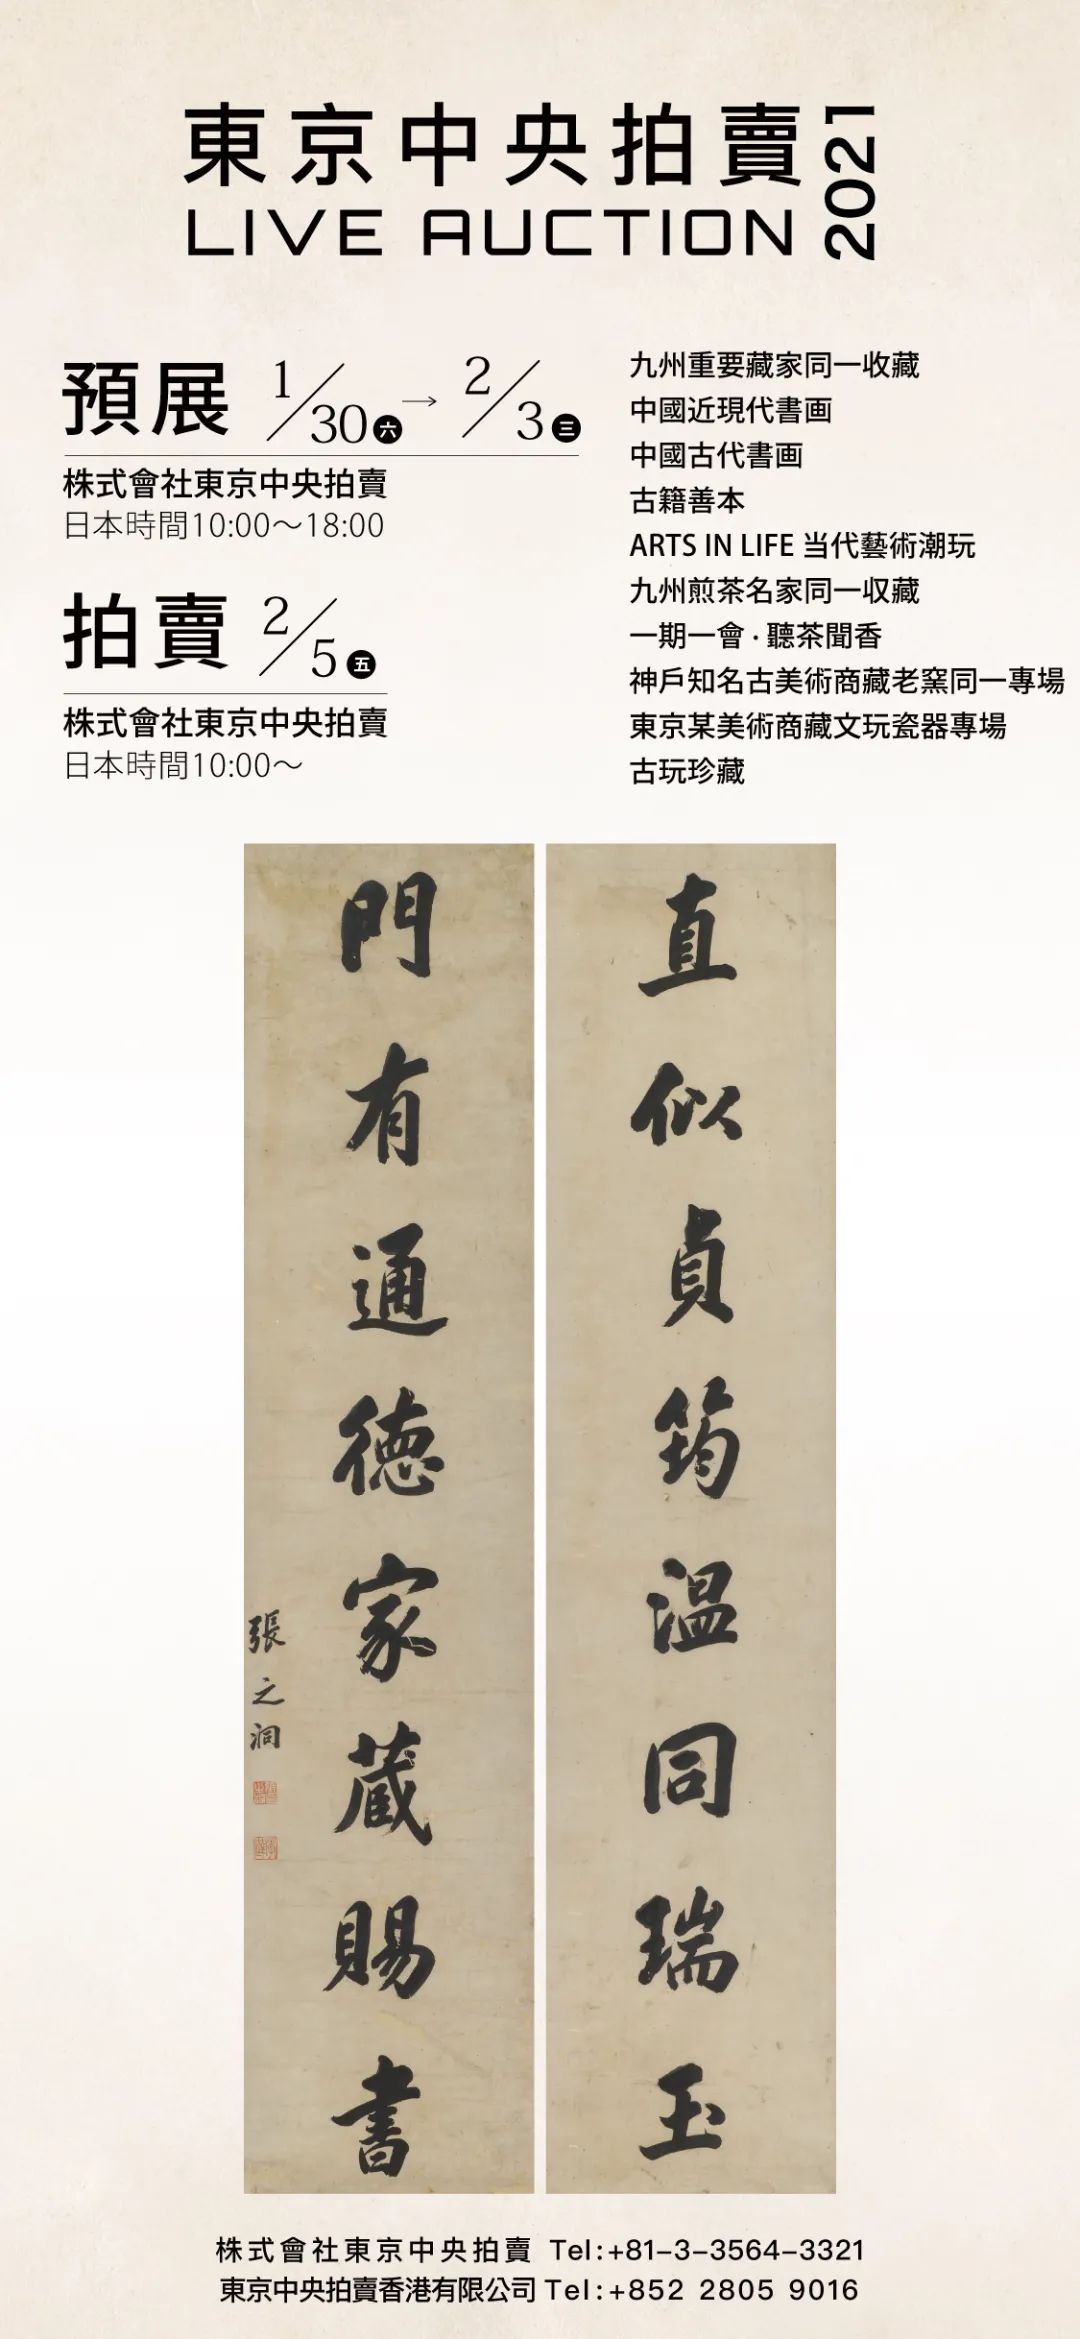 東京中央拍賣
LIVE AUCTION
2021
預展 1/30六→2/3三
株式會社東京中央拍賣
日本時間10:00～18:00
拍賣 2/5五
株式會社東京中央拍賣
日本時間10:00～
九州重要藏家同一收藏
中國近現代書画
中國古代書画
古籍善本
ARTS IN LIFE 当代藝術潮玩
九州煎茶名家同一収藏
一期一會·聽茶聞香
神戶知名古美術商藏老窯同一專場
東京某美術商藏文玩瓷器專場
古玩珍藏
直似貞筠温同瑞玉
門有通德家蔵賜書
張之洞
株式會社東京中央拍賣 Tel:+81-3-3564-3321
東京中央拍賣香港有限公司 Tel:+852 2805 9016